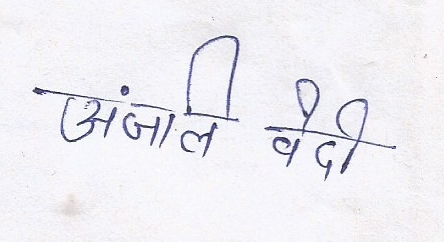 अंजलि वेदी